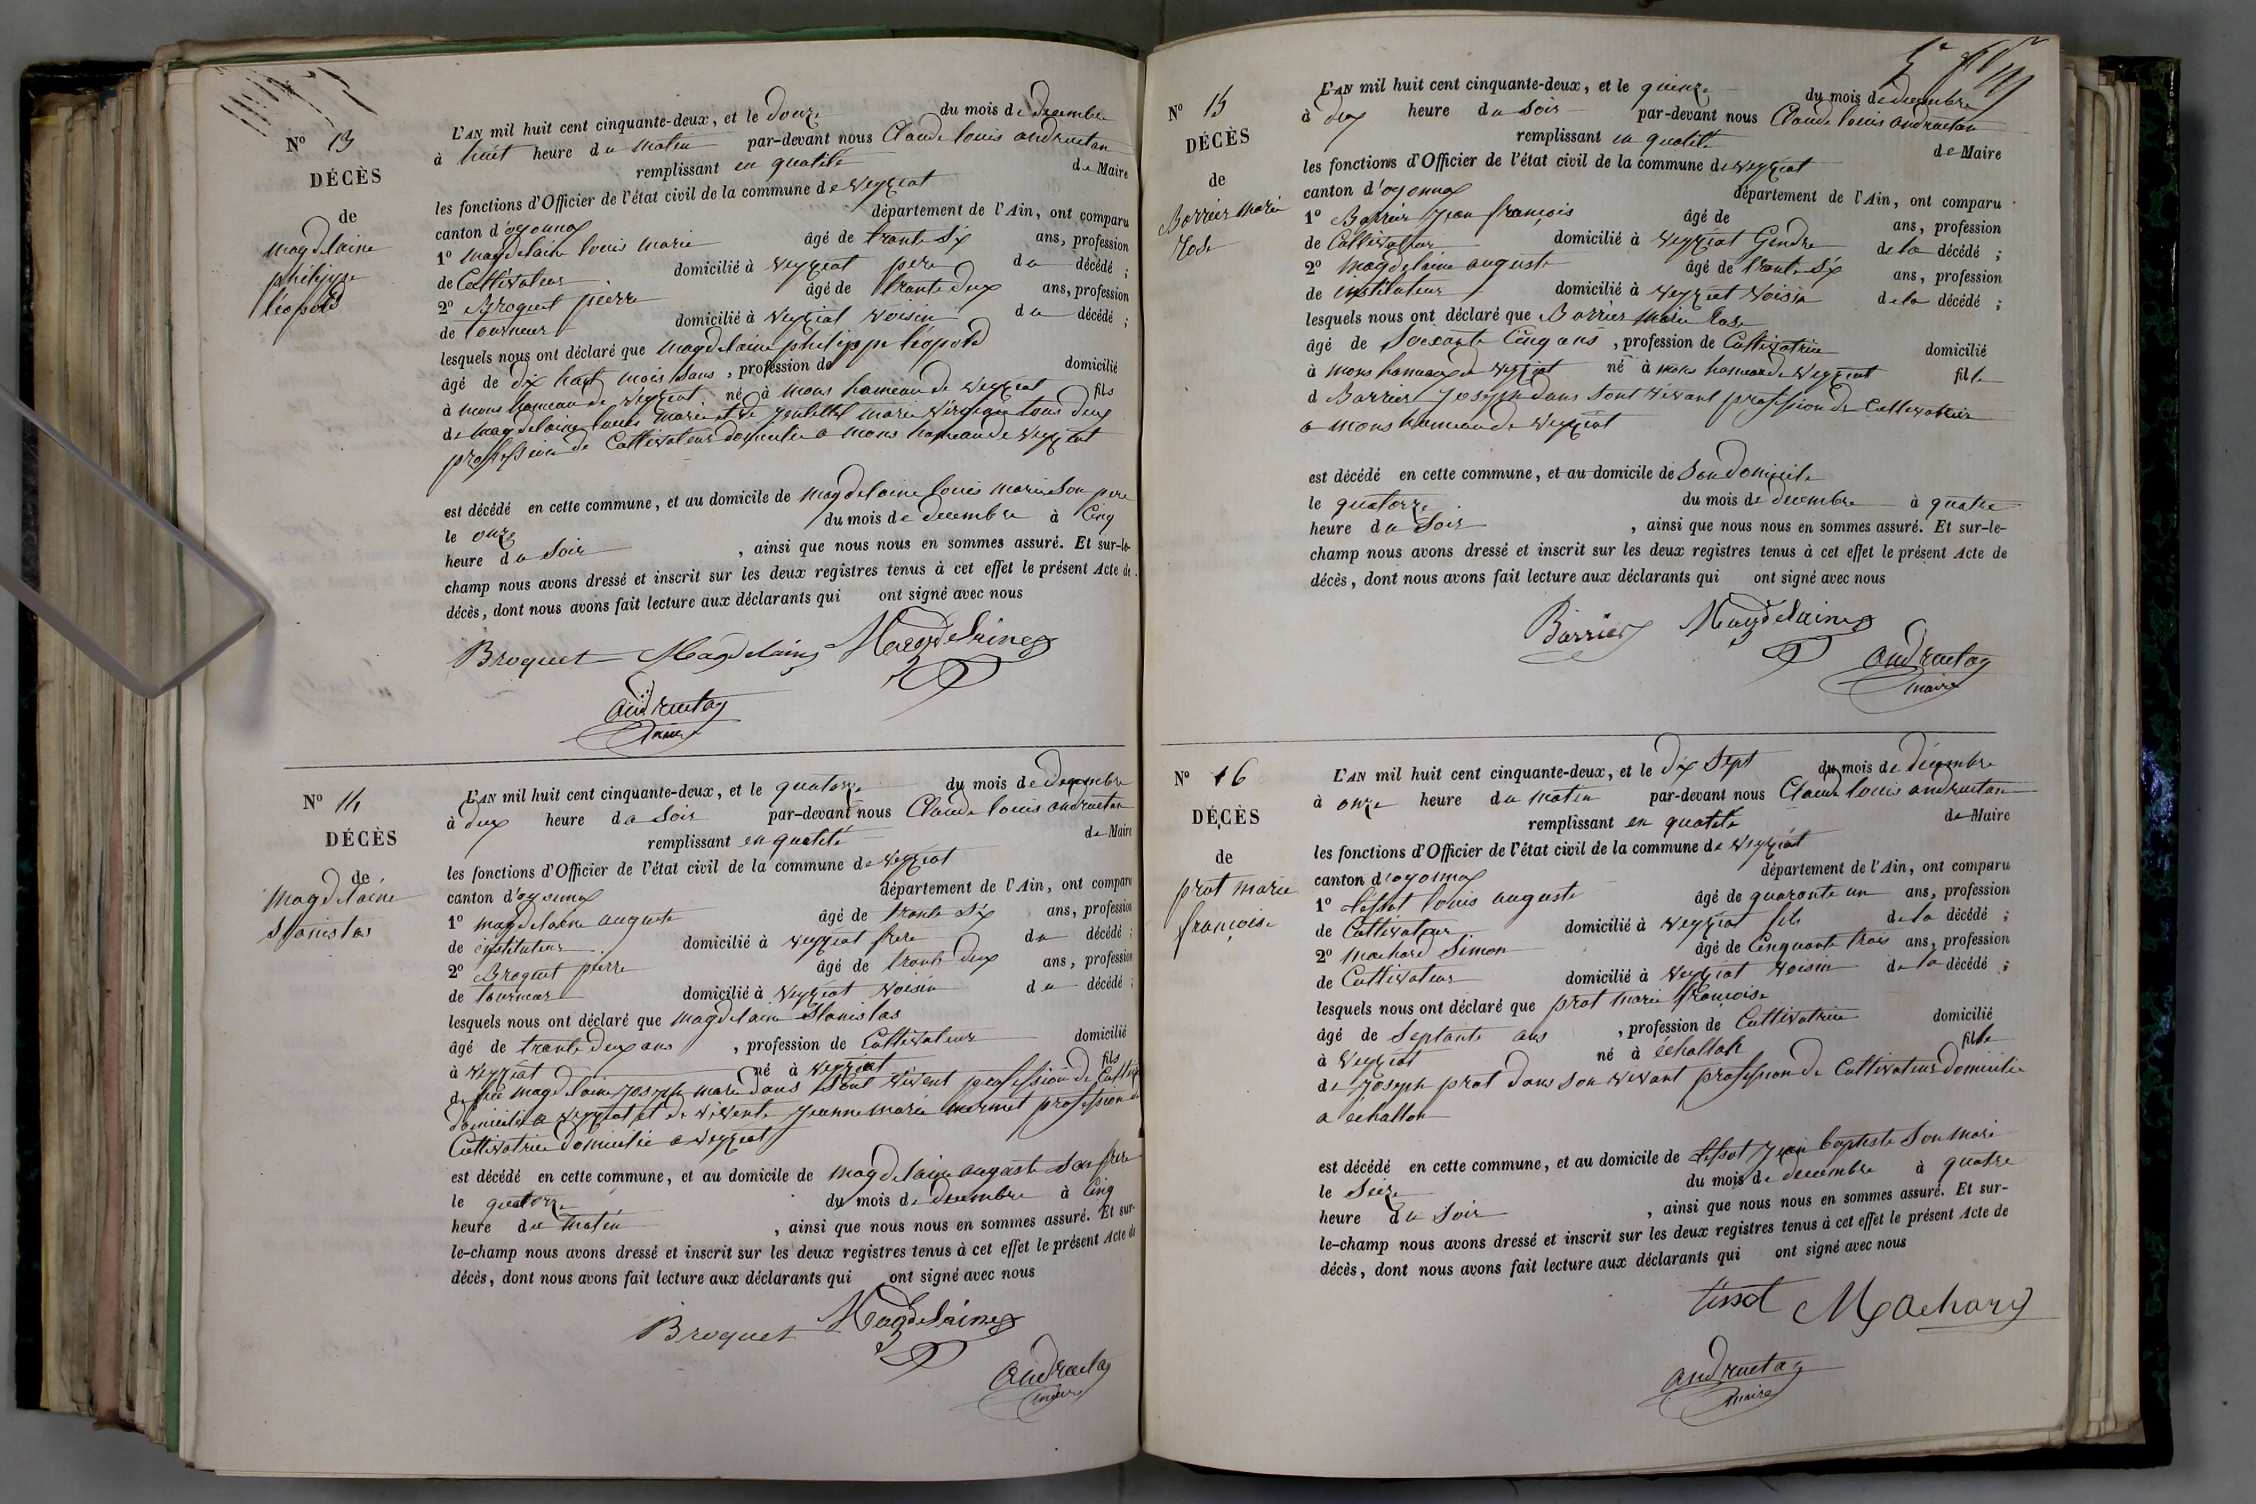 N° 13
DÉCÈS
de
magdelaine
philippe
léopold
L'AN mil huit cent cinquante-deux, et le douze du mois de decembre
à huit heure du matin par-devant nous Claude louis andruetan
remplissant en qualité de Maire
les fonctions d'Officier de l'état civil de la commune de veyziat
canton d'oyonnax département de l'Ain, ont comparu
1° magdelaine louis marie âgé de trante six ans, profession
de Cultivateur domicilié à veyziat pere du décédé ;
2° Broquet pierre âgé de trante deux ans, profession
de tourneur domicilié à veyziat voisin du décédé ;
lesquels nous ont déclaré que magdelaine philippe léopold
âgé de dix huit mois sans, profession de domicilié
à mons hameau de veyziat né à mons hameau de veyziat fils
de magdelaine louis marie et de marie virginie tous deux
profession de Cultivateur domicilie a mons hameau de veyziat
est décédé en cette commune, et au domicile de magdelaine louis marie son pere
le onze du mois de decembre à Cinq
heure du soir , ainsi que nous nous en sommes assuré. Et sur-le-
champ nous avons dressé et inscrit sur les deux registres tenus à cet effet le présent Acte de
décès, dont nous avons fait lecture aux déclarants qui ont signé avec nous
Broquet Magdelaine Magdelaine
andruetan
maire
N° 14
DÉCÈS
de
magdelaine
stanislas
L'AN mil huit cent cinquante-deux, et le quatorze du mois de decembre
à deux heure du soir par-devant nous Claude louis andruetan
remplissant en qualité de Maire
les fonctions d'Officier de l'état civil de la commune de veyziat
canton d'oyonnax département de l'Ain, ont comparu
1° magdelaine auguste âgé de trante six ans, profession
de instituteur domicilié à veyziat frere du décédé ;
2° Broquet pierre âgé de trante deux ans, profession
de tourneur domicilié à veyziat voisin du décédé ;
lesquels nous ont déclaré que magdelaine stanislas
âgé de trante deux ans , profession de Cultivateur domicilié
à veyziat né à veyziat fils
de feu magdelaine joseph marie dans sont vivent profession de Cultiv
domicilie a veyziat et de vivente jeanne marie mermet profession de
Cultivatrice domicilie a veyziat
est décédé en cette commune, et au domicile de magdelaine auguste son frere
le quatorze du mois de decembre à Cinq
heure du matin , ainsi que nous nous en sommes assuré. Et sur-
le-champ nous avons dressé et inscrit sur les deux registres tenus à cet effet le présent Acte de
décès, dont nous avons fait lecture aux déclarants qui ont signé avec nous
Broquet Magdelaine
andruetan
maire
N° 15
DÉCÈS
de
Barrier marie
rose
L'AN mil huit cent cinquante-deux, et le quinze du mois de decembre
à deux heure du soir par-devant nous Claude louis andruetan
remplissant en qualité de Maire
les fonctions d'Officier de l'état civil de la commune de veyziat
canton d'oyonnax département de l'Ain, ont comparu
1° Barrier jean françois âgé de ans, profession
de Cultivateur domicilié à veyziat Gendre de la décédé ;
2° magdelaine auguste âgé de trante six ans, profession
de instituteur domicilié à veyziat voisin de la décédé ;
lesquels nous ont déclaré que Barrier marie rose
âgé de soixante Cinq ans , profession de Cultivatrice domicilié
à mons hameau de veyziat né à mons hameau de veyziat fille
d Barrier joseph dans sont vivant profession de Cultivateur
a mons hameau de veyziat
est décédé en cette commune, et au domicile de son domicile
le quatorze du mois de decembre à quatre
heure du soir , ainsi que nous nous en sommes assuré. Et sur-le-
champ nous avons dressé et inscrit sur les deux registres tenus à cet effet le présent Acte de
décès, dont nous avons fait lecture aux déclarants qui ont signé avec nous
Barrier Magdelaine
andruetan
maire
N° 16
DÉCÈS
de
prat marie
françoise
L'AN mil huit cent cinquante-deux, et le dix sept du mois de décembre
à onze heure du matin par-devant nous Claude louis andruetan
remplissant en qualité de Maire
les fonctions d'Officier de l'état civil de la commune de veyziat
canton d'oyonnax département de l'Ain, ont comparu
1° tissot louis auguste âgé de quarante un ans, profession
de Cultivateur domicilié à veyziat fils de la décédé ;
2° machard Simon âgé de Cinquante trois ans, profession
de Cultivateur domicilié à veyziat voisin de la décédé ;
lesquels nous ont déclaré que prat marie françoise
âgé de septante ans , profession de Cultivatrice domicilié
à veyziat né à échallon fille
de joseph prat dans son vivant profession de Cultivateur domicilie
a echallon
est décédé en cette commune, et au domicile de tissot jean baptiste son mari
le seize du mois de decembre à quatre
heure du soir , ainsi que nous nous en sommes assuré. Et sur-
le-champ nous avons dressé et inscrit sur les deux registres tenus à cet effet le présent Acte de
décès, dont nous avons fait lecture aux déclarants qui ont signé avec nous
tissot Machard
andruetan
maire